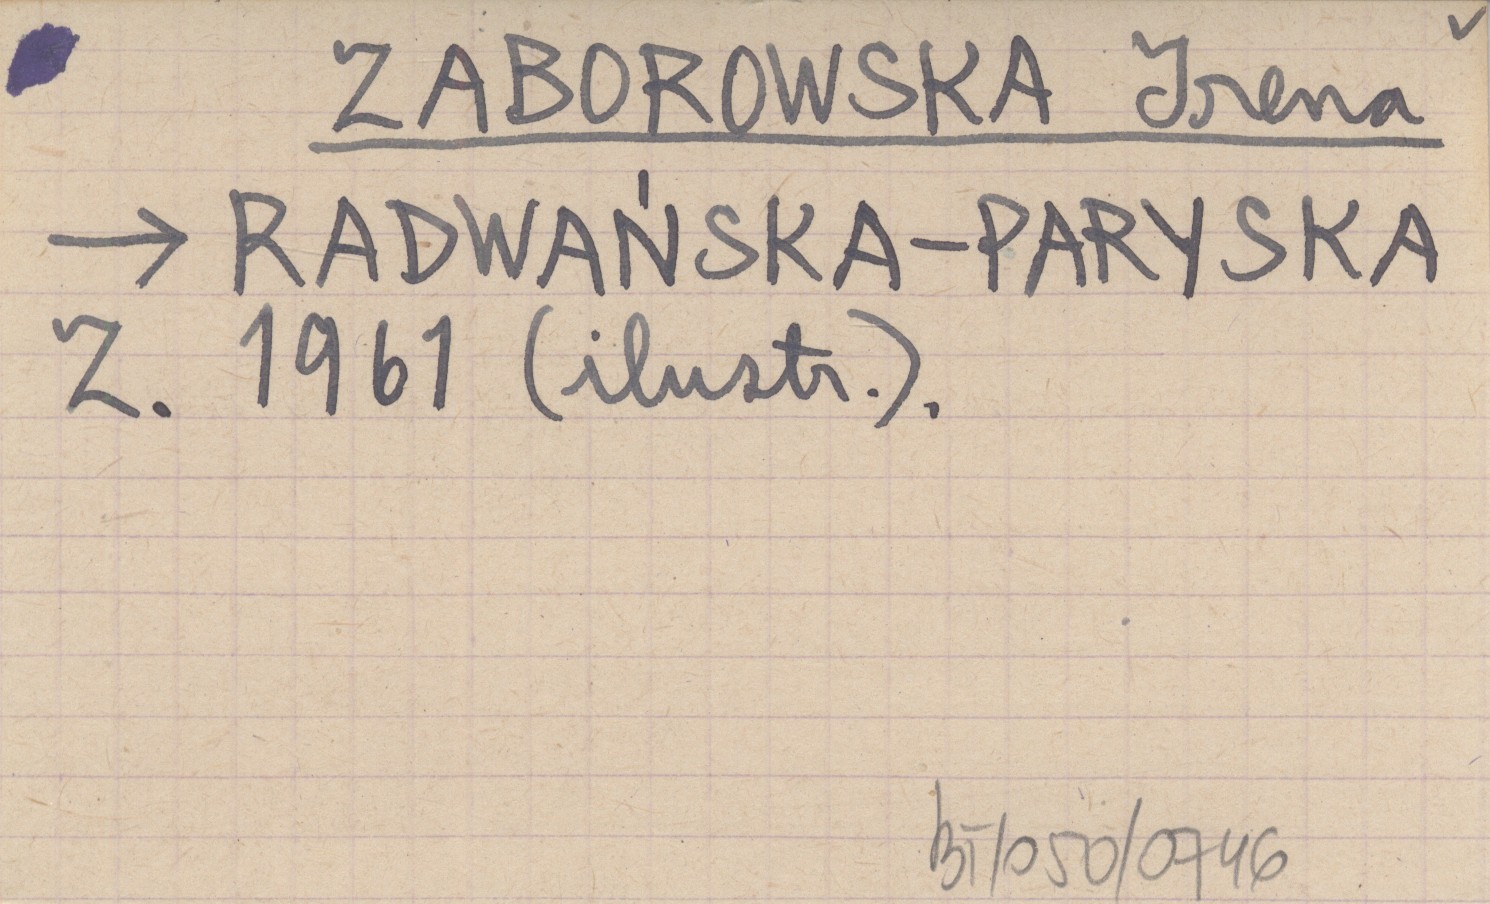 ZABOROWSKA Irena
→ RADWAŃSKA-PARYSKA
Z. 1961 (ilustr.).
BT/050/0746